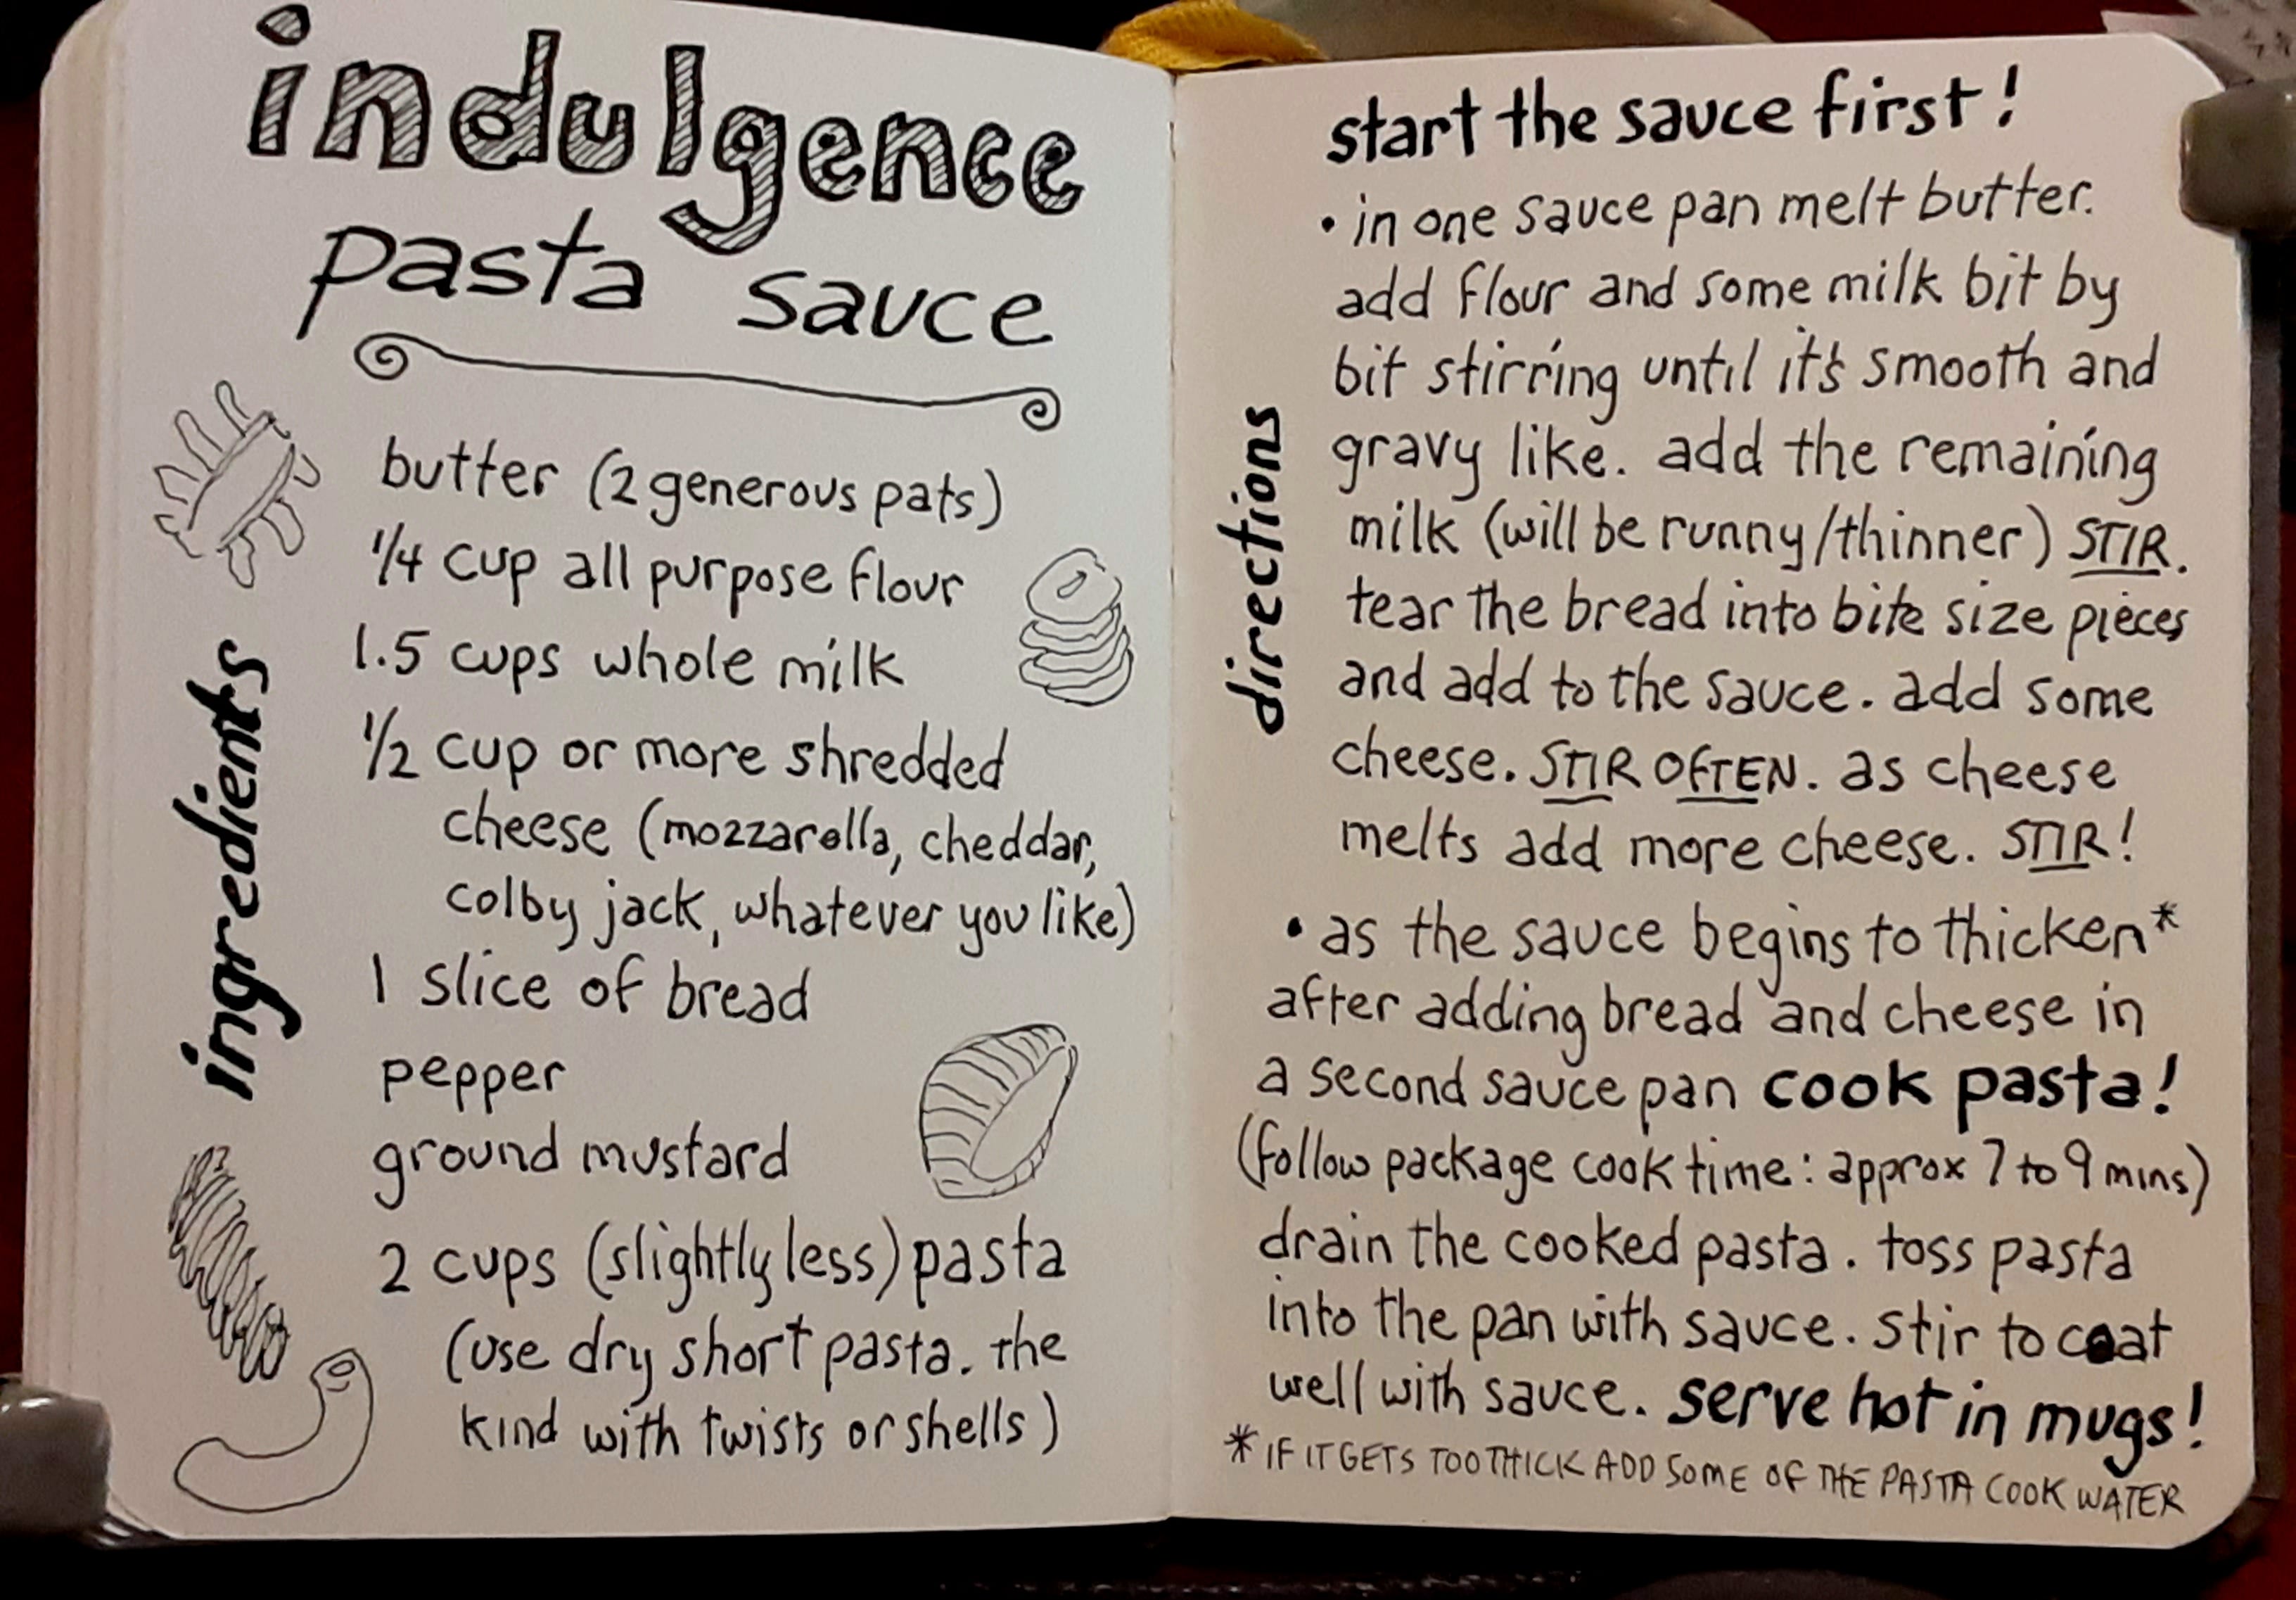 indulgence
pasta sauce
ingredients
butter (2 generous pats)
1/4 cup all purpose flour
1.5 cups whole milk
1/2 cup or more shredded
cheese (mozzarella, cheddar,
colby jack, whatever you like)
1 slice of bread
pepper
ground mustard
2 cups (slightly less) pasta
(use dry short pasta. the
kind with twists or shells)
directions
start the sauce first!
• in one sauce pan melt butter.
add flour and some milk bit by
bit stirring until it's smooth and
gravy like. add the remaining
milk (will be runny/thinner) STIR.
tear the bread into bite size pieces
and add to the sauce. add some
cheese. STIR OFTEN. as cheese
melts add more cheese. STIR!
• as the sauce begins to thicken*
after adding bread and cheese in
a second sauce pan cook pasta!
(follow package cook time: approx 7 to 9 mins)
drain the cooked pasta. toss pasta
into the pan with sauce. stir to coat
well with sauce. serve hot in mugs!
* IF IT GETS TOO THICK ADD SOME OF THE PASTA COOK WATER